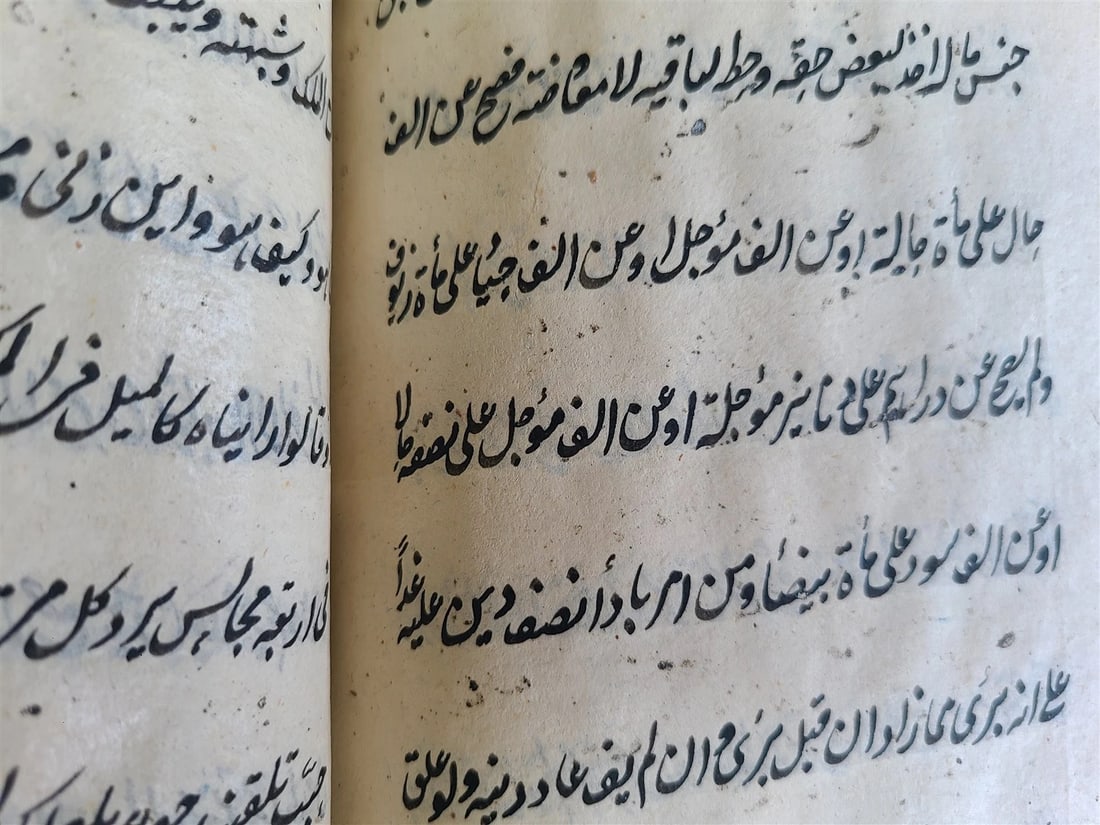 جنس ماله اخذ لبعض حقه وحط لباقيه لا معاوضة فصح عن الف
حال على مأة حالة او عن الف مؤجل او عن الف جيُا على مأة زيوف
ولم يصح عن دراهم على دنانير مؤجلة او عن الف مؤجل على نصفه حالا
او عن الف سود على مأة بيضا ومن امر بادأ نصف دين عليه غداً
على انه برئ مما زاد ان قبل برئ وان لم يف عاد دينه ولو علق
الملك وشبهته
كيف هو واين زنى
وقالوا رانياه كالميل
في اربعة مجالس يرد كل
تلقينه